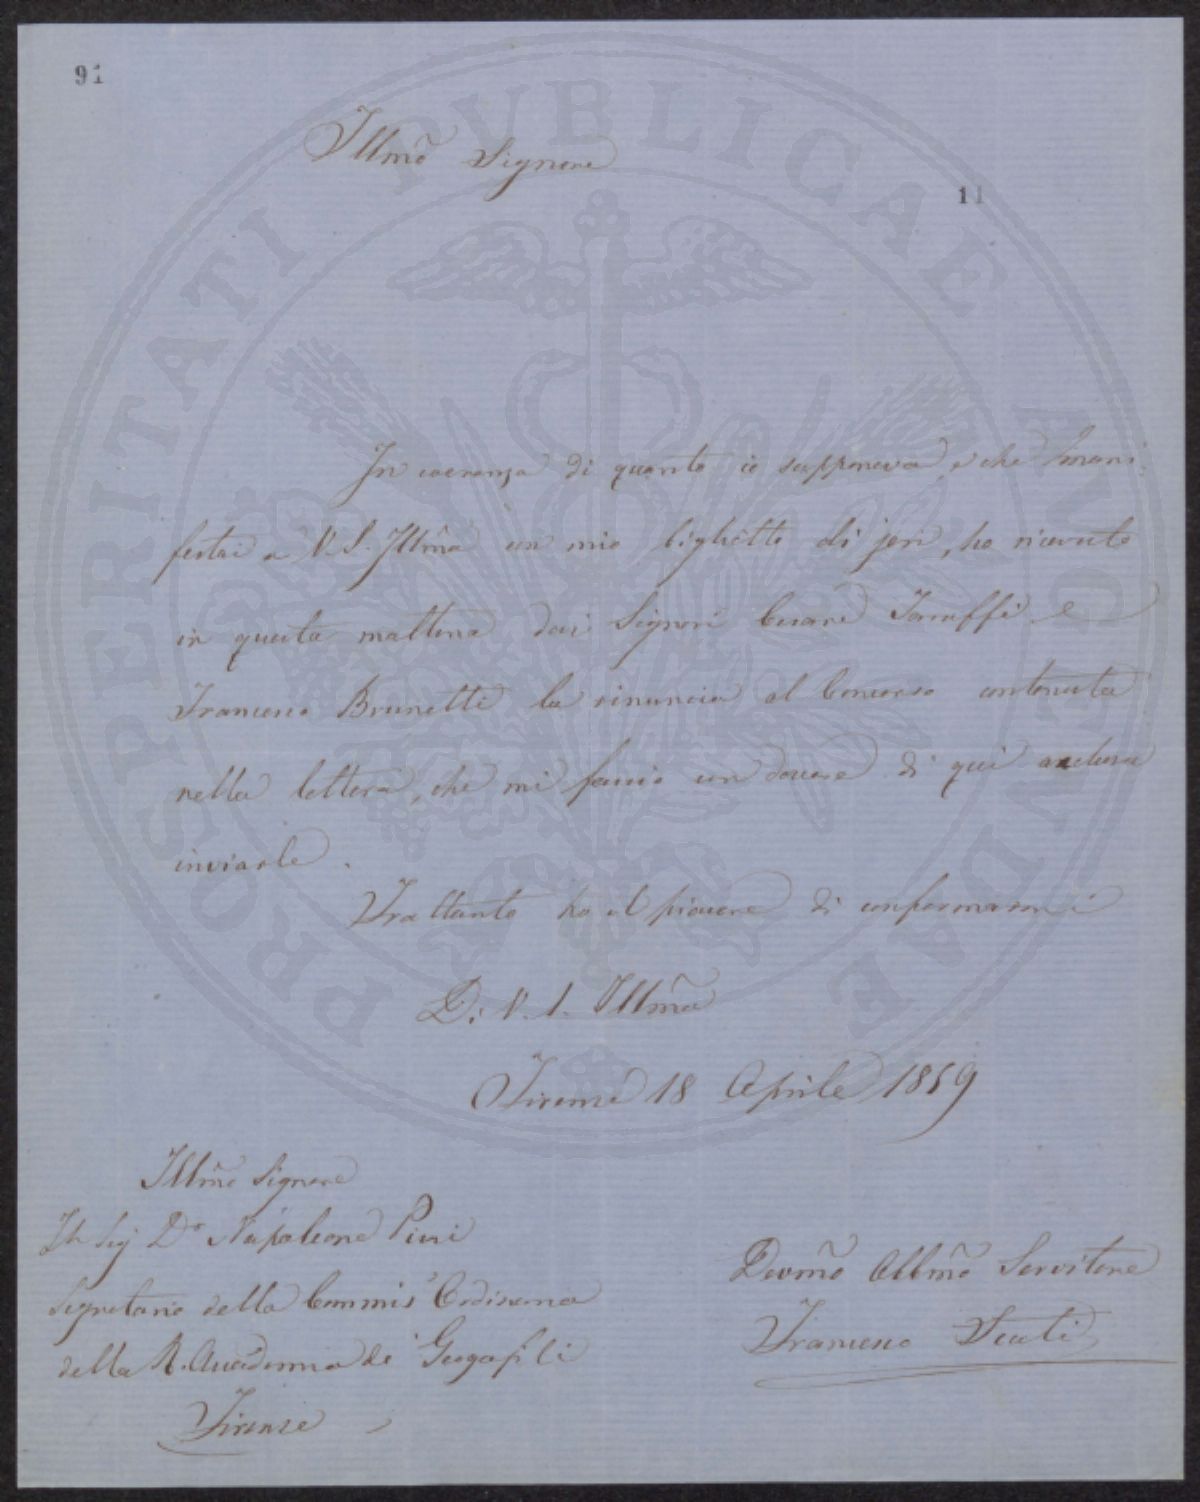 91
Illmo Signore
11
In coerenza di quanto io supponeva, e che mani
festai a V. S. Illma in mio biglietto di jeri, ho ricevuto
in questa mattina dai Signori Cesare Taruffi e
Francesco Brunetti la rinuncia al Concorso contenuta
nella lettera, che mi faccio un dovere di qui acclusa
inviarle.
Frattanto ho il piacere di confermarmi
Di V. S. Illma
Firenze 18 Aprile 1859
Illmo Signore
Il Sig Dr Napoleone Pini
Segretario della Commise Ordinaria
della R. Accademia de' Georgofili
Firenze
Devmo Obbmo Servitore
Francesco
PROSPERITATI PVBLICAE AVGENDAE